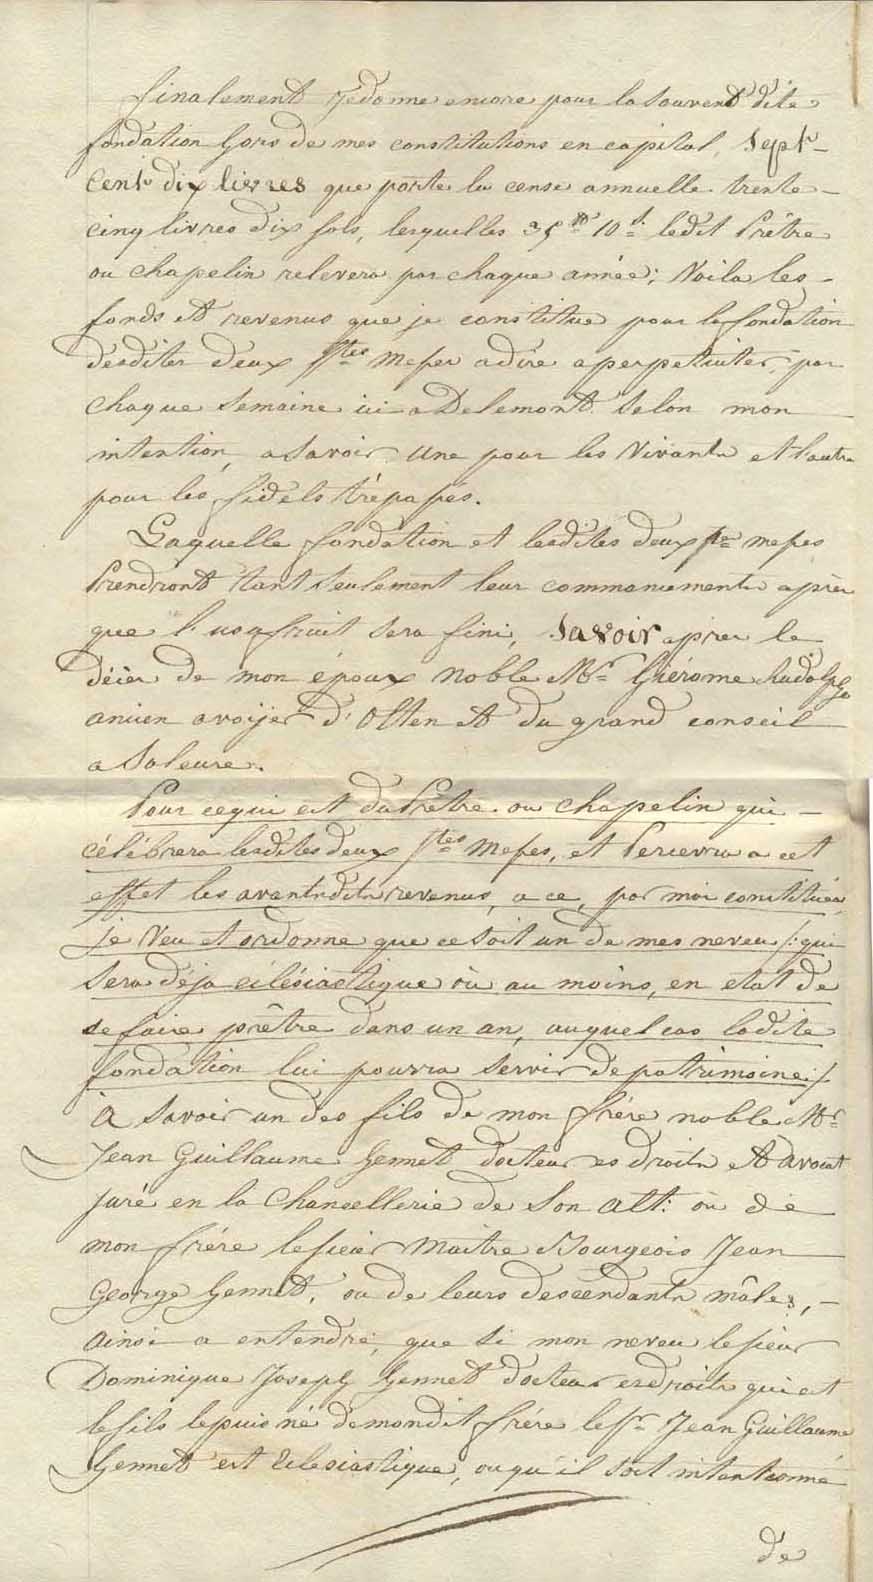 finalement Je donne encore pour la souvent dite
fondation hors de mes constitutions en capital, Sept-
Cent dix livres que porte la cense annuelle trente-
cinq livres dix sols, lesquelles 35 ₶ 10 s. ledit Prêtre
ou chapelin relevera par chaque année; Voila les
fonds et revenus que je constitue pour la fondation
desdites deux stes Messes a dire a perpetuiter, par
chaque semaine ici a Delemont selon mon
intention, a savoir une pour les Vivants et l'autre
pour les fidels trépassés.
Laquelle fondation et lesdites deux stes messes
Prendront tant seulement leur commancements après
que l'usufruit sera fini, Savoir aprer le
décès de mon époux noble Mr. Giérome Rudolph
ancien avoijer d'Olten et du grand conseil
a Soleure.
Pour ce qui est du Prêtre ou chapelin qui
célébrera lesdites deux stes Messes, et Percevra a cet
effet les avantdits revenus, a ce, par moi constitués,
je Veu et ordonne que ce soit un de mes neveu /: qui
sera déja eclésiastique où au moins, en etat de
se faire prêtre dans un an, auquel cas ladite
fondation lui pourra servir de patrimoine :/
à Savoir un des fils de mon frére noble Mr.
Jean Guillaume Gennet docteur es droits et avocat
juré en la Chancellerie de Son Alt: où de
mon frére le sieur Maitre Bourgeois Jean
George Gennet, ou de leurs descendants mâles,
ainsi a entendre, que si mon neveu le sieur
Dominique Joseph Gennet docteur es droits qui est
le fils le puis né de mondit frére le sr. Jean Guillaume
Gennet est Eclesiastique, ou qu'il soit intentionné
de